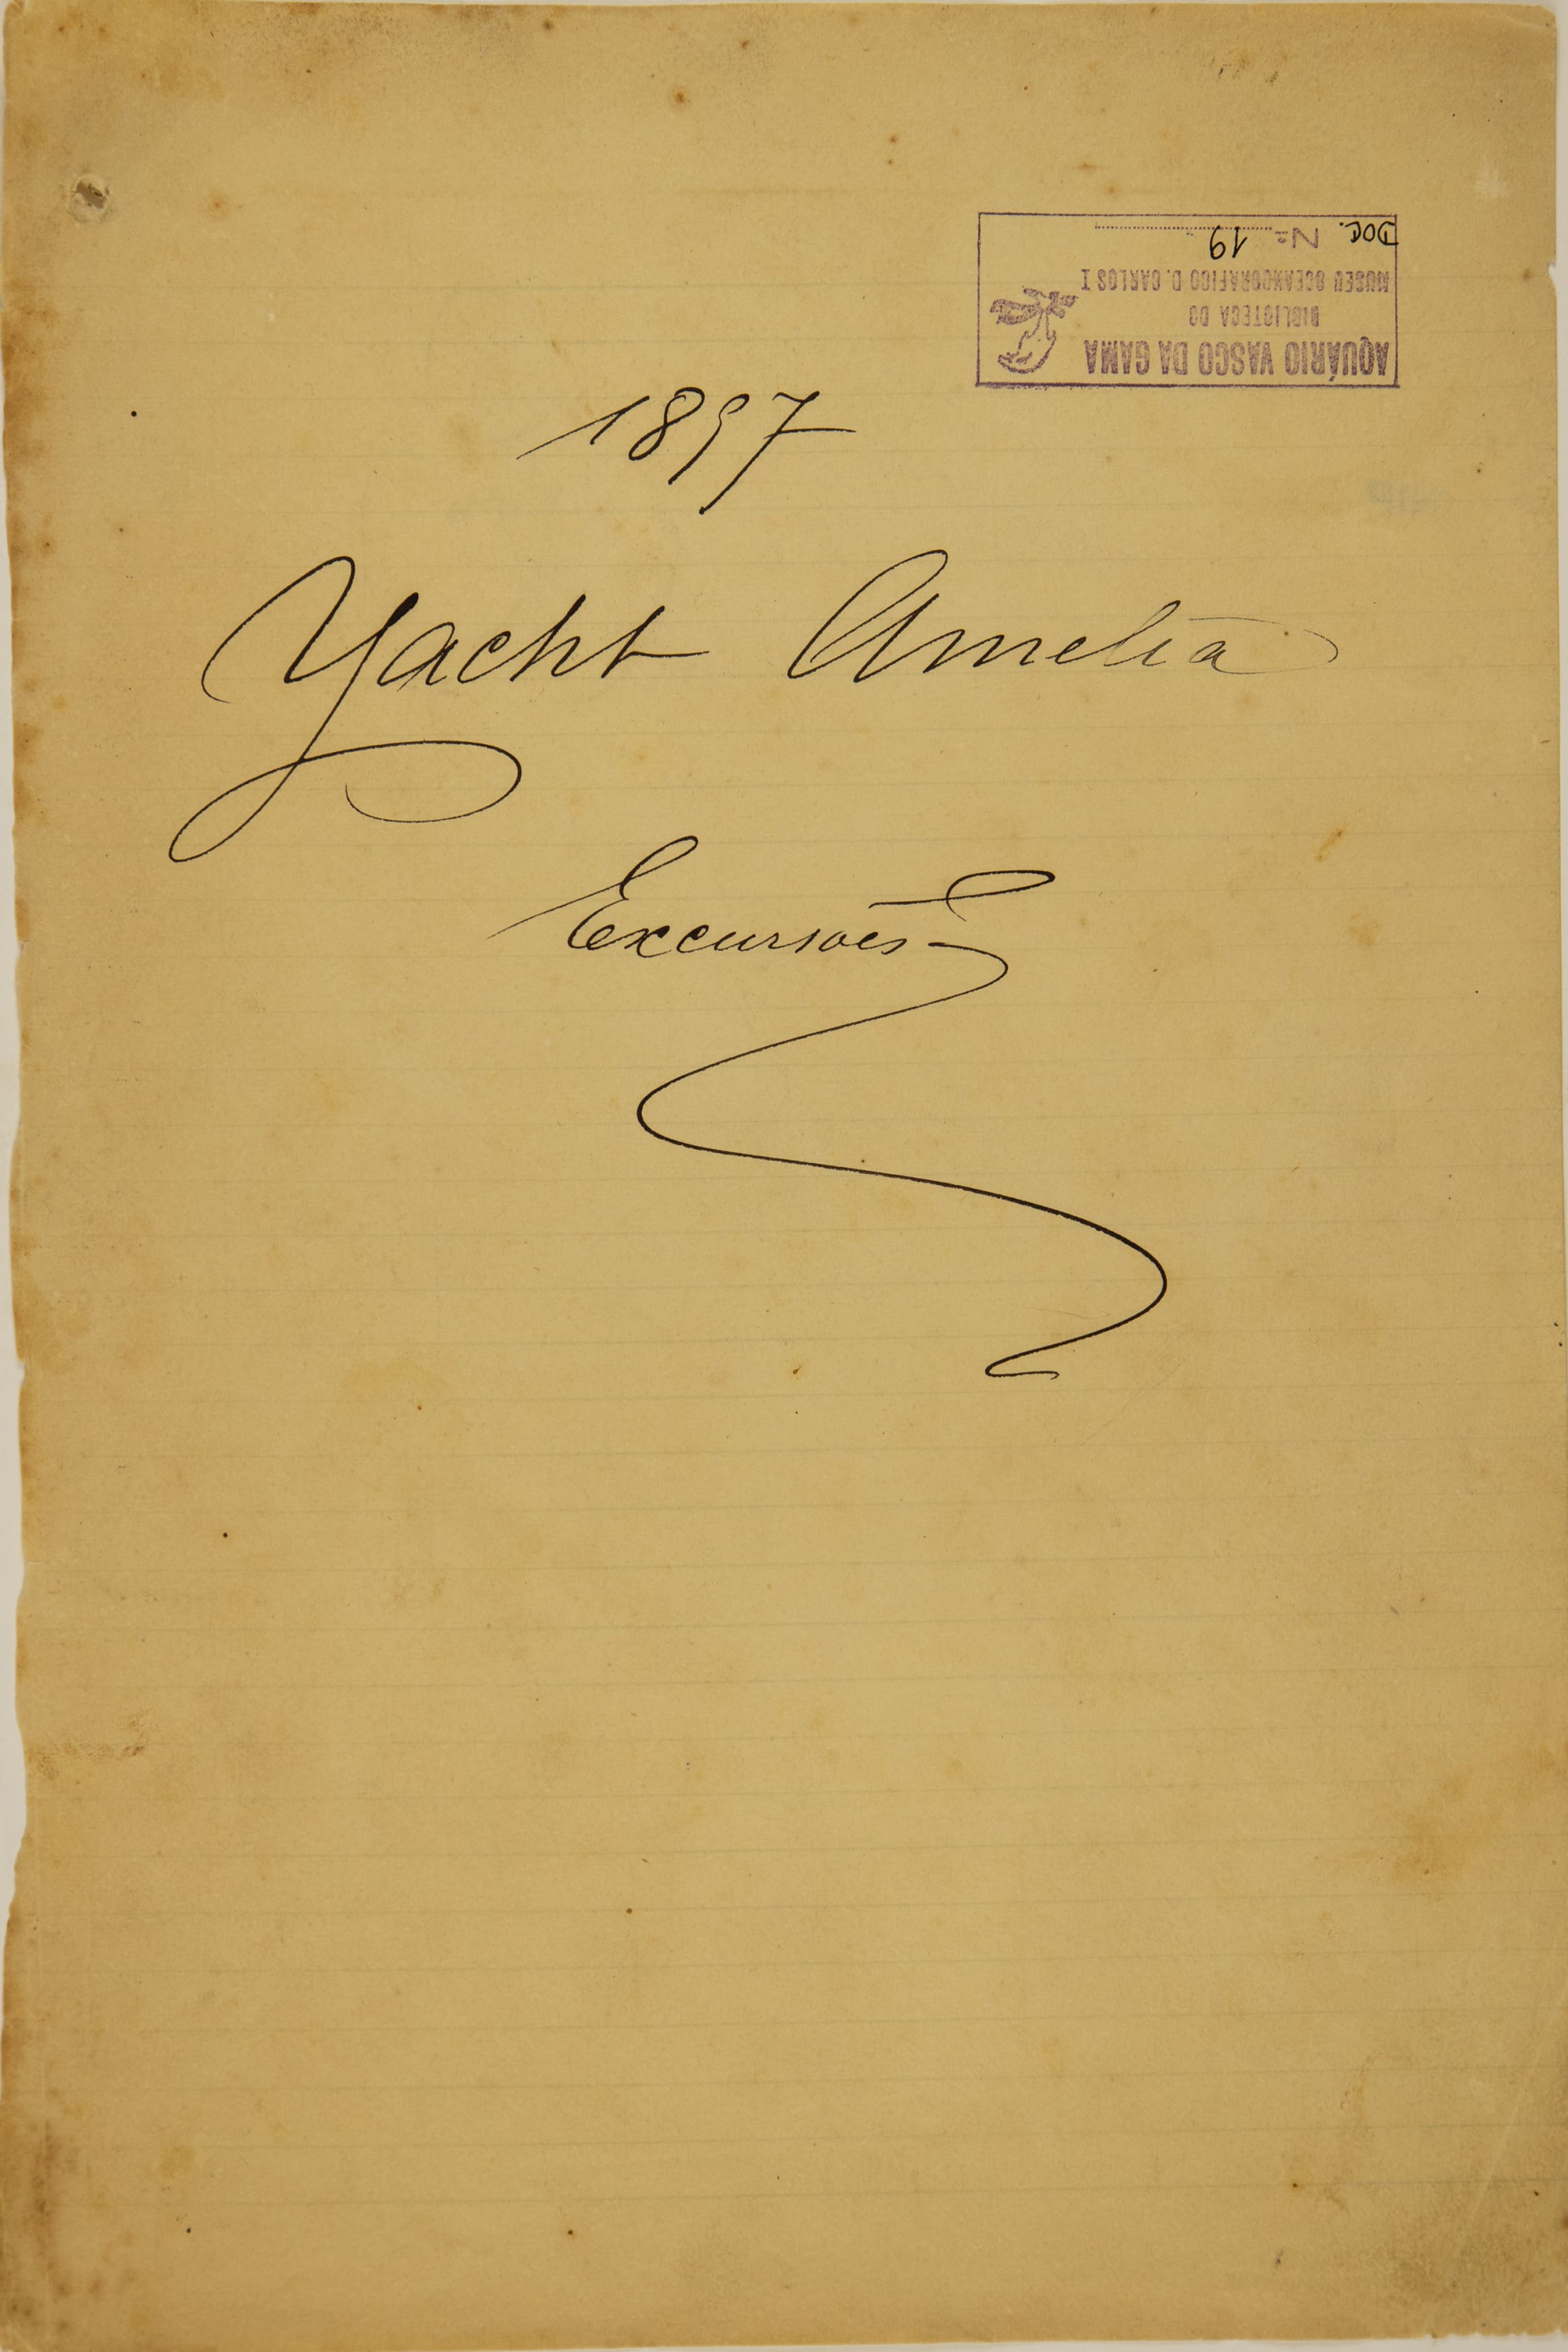 AQUÁRIO VASCO DA GAMA
BIBLIOTECA DO
MUSEU OCEANOGRÁFICO D. CARLOS I
DOC. Nº 19
1897
Yacht Amelia
Excursões